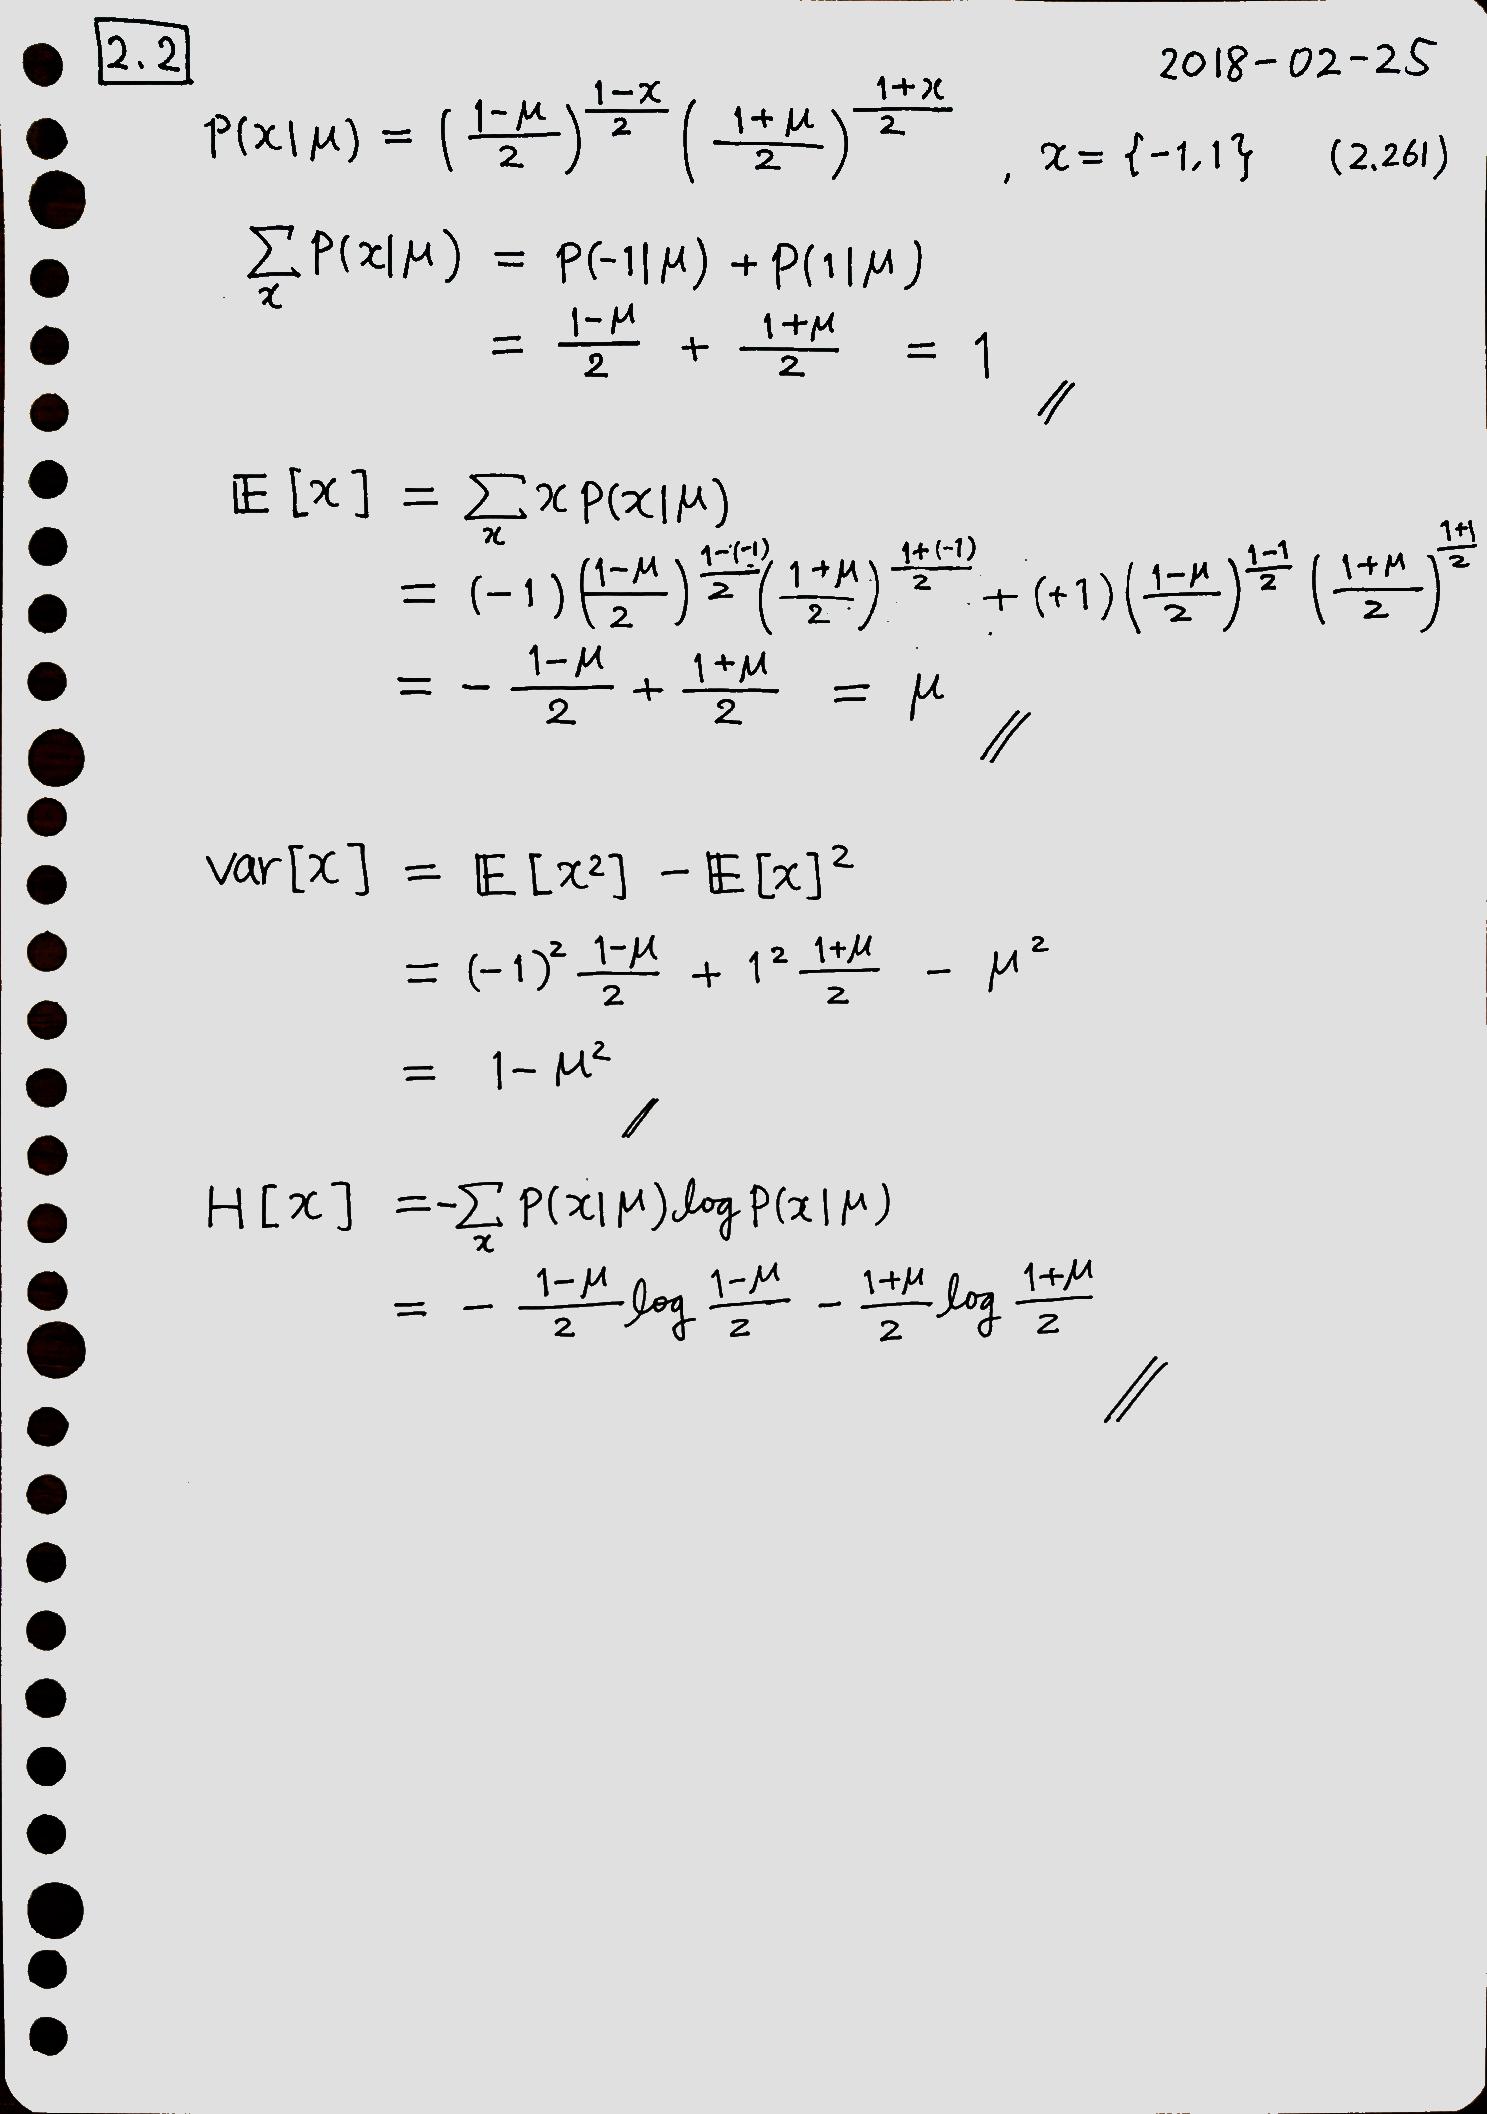 2.2
2018-02-25
P(x|μ) = ((1-μ)/2)^((1-x)/2) ((1+μ)/2)^((1+x)/2) , x={-1,1} (2.261)
∑_x P(x|μ) = P(-1|μ) + P(1|μ)
= (1-μ)/2 + (1+μ)/2 = 1 //
𝔼[x] = ∑_x x P(x|μ)
= (-1)((1-μ)/2)^((1-(-1))/2) ((1+μ)/2)^((1+(-1))/2) + (+1)((1-μ)/2)^((1-1)/2) ((1+μ)/2)^((1+1)/2)
= - (1-μ)/2 + (1+μ)/2 = μ //
var[x] = 𝔼[x²] - 𝔼[x]²
= (-1)² (1-μ)/2 + 1² (1+μ)/2 - μ²
= 1-μ² //
H[x] = -∑_x P(x|μ) log P(x|μ)
= - (1-μ)/2 log (1-μ)/2 - (1+μ)/2 log (1+μ)/2 //